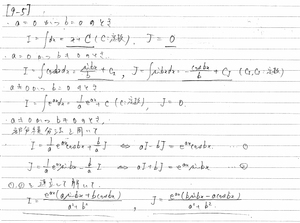 [9-5]
・a=0 かつ b=0 のとき
I=∫dx=x+C (C:定数), J=0
a=0 かつ b≠0 のとき
I=∫cosbxdx=sinbx/b+C₁, J=∫sinbxdx=-cosbx/b+C₂ (C₁,C₂:定数)
a≠0 かつ b=0 のとき
I=∫e^{ax}dx=1/a e^{ax}+C (C:定数), J=0.
a≠0 かつ b≠0 のとき,
部分積分法を用いて
I=1/a e^{ax}cosbx+b/a J ⇔ aI-bJ=e^{ax}cosbx ①
J=1/a e^{ax}sinbx-b/a I ⇔ aJ+bI=e^{ax}sinbx ②
①,②を連立して解いて,
I=e^{ax}(asinbx+bcosbx)/a²+b², J=e^{ax}(bsinbx-acosbx)/a²+b²